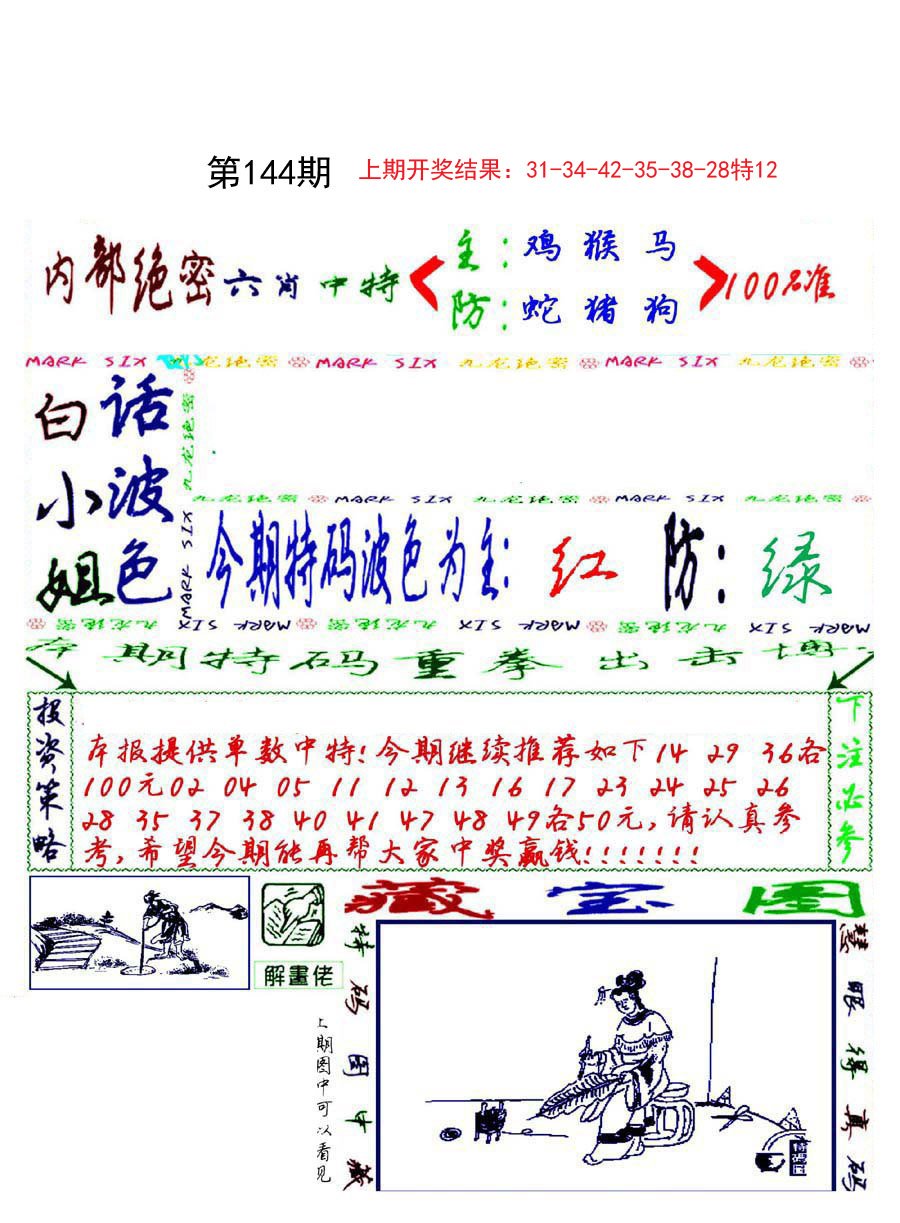 第144期 上期开奖结果：31-34-42-35-38-28特12
内部绝密六肖中特
主：鸡 猴 马
防：蛇 猪 狗
100%准
MARK SIX 九龙绝密 MARK SIX 九龙绝密 MARK SIX
白小姐
话波色
九龙绝密 MARK SIX
九龙绝密 MARK SIX 九龙绝密 MARK SIX 九龙绝密
今期特码波色为主：红 防：绿
九龙绝密 MARK SIX 九龙绝密 MARK SIX 九龙绝密 MARK SIX
本期特码重拳出击博
投资策略
本报提供单数中特！今期继续推荐如下14 29 36各
100元02 04 05 11 12 13 16 17 23 24 25 26
28 35 37 38 40 41 47 48 49各50元，请认真参
考，希望今期能再帮大家中奖赢钱！！！！！！！
下注必参
藏宝图
解畫佬
上期图中可以看见
特码图中藏
慧眼得真码